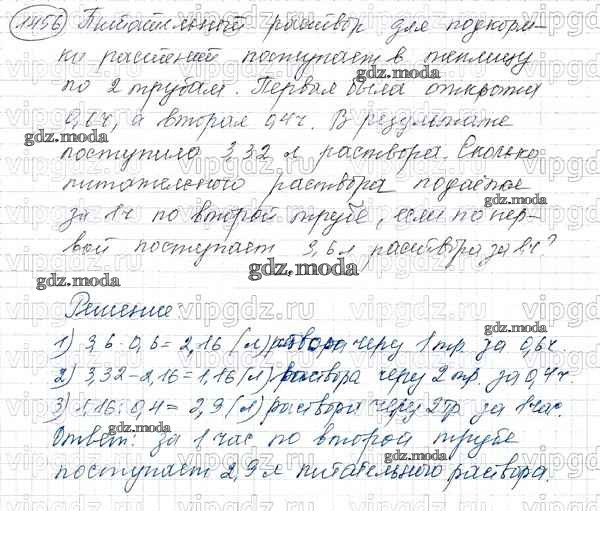 1456 Питательный раствор для подкорм-
ки растений поступает в теплицу
по 2 трубам. Первая была открыта
0,6ч, а вторая 0,4ч. В результате
поступило 3,32 л раствора. Сколько
питательного раствора подаётся
за 1ч по второй трубе, если по пер-
вой поступает 3,6л раствора за 1ч?
Решение
1) 3,6·0,6=2,16 (л) раствора через 1тр. за 0,6ч.
2) 3,32-2,16=1,16 (л) раствора через 2тр. за 0,4ч.
3) 1,16:0,4=2,9 (л) раствора через 2тр за 1час.
Ответ: за 1 час по второй трубе
поступает 2,9 л питательного раствора.
gdz.moda
gdz.moda
gdz.moda
gdz.moda
gdz.moda
gdz.moda
gdz.moda
gdz.moda
gdz.moda